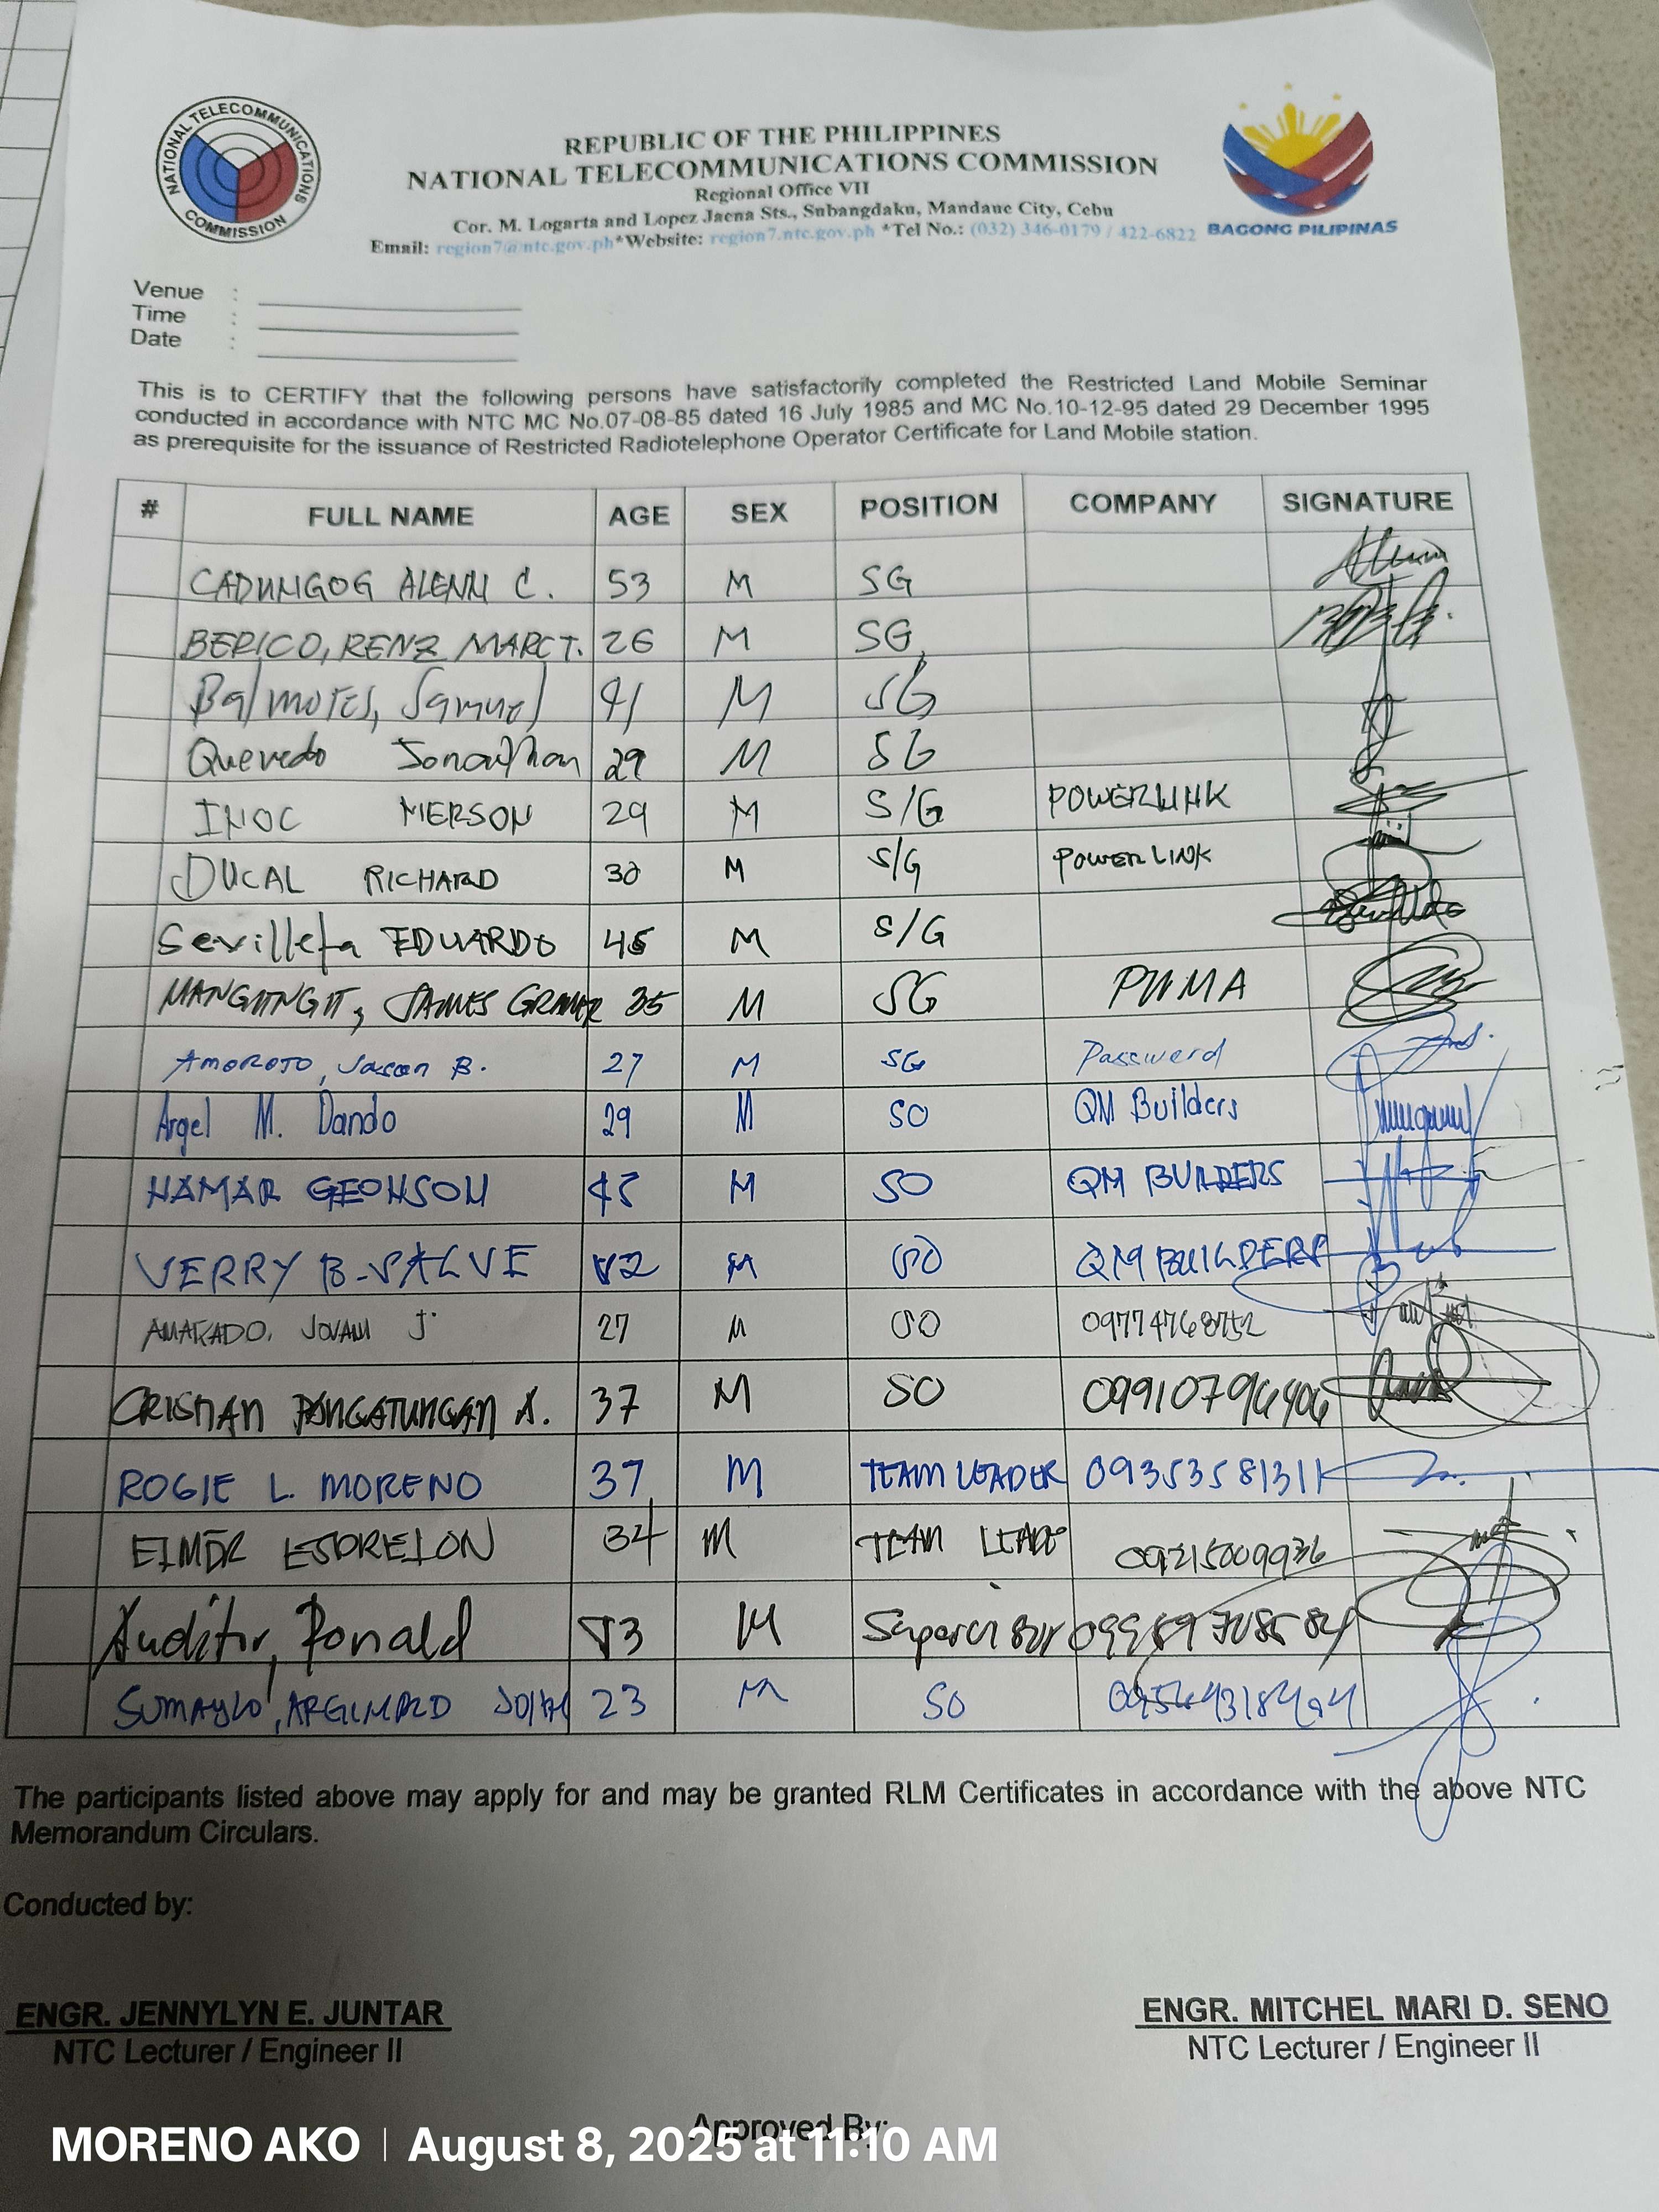 NATIONAL TELECOMMUNICATIONS COMMISSION
REPUBLIC OF THE PHILIPPINES
NATIONAL TELECOMMUNICATIONS COMMISSION
Regional Office VII
Cor. M. Logarta and Lopez Jaena Sts., Subangdaku, Mandaue City, Cebu
Email: region7@ntc.gov.ph*Website: region7.ntc.gov.ph *Tel No.: (032) 346-0179 / 422-6822
BAGONG PILIPINAS
Venue :
Time :
Date :
This is to CERTIFY that the following persons have satisfactorily completed the Restricted Land Mobile Seminar
conducted in accordance with NTC MC No.07-08-85 dated 16 July 1985 and MC No.10-12-95 dated 29 December 1995
as prerequisite for the issuance of Restricted Radiotelephone Operator Certificate for Land Mobile station.
# FULL NAME AGE SEX POSITION COMPANY SIGNATURE
CADUNGOG ALENN C. 53 M SG
BERICO, RENZ MARC T. 26 M SG
Balmores, Samuel 41 M SG
Quevedo Jonathan 29 M SG
INOC MERSON 29 M S/G POWERLINK
DUCAL RICHARD 30 M S/G POWERLINK
Sevilleja EDUARDO 45 M S/G
JAMES 35 M SG
AMOROTO, Jason B. 27 M SG Password
Argel M. Dando 29 M SO QM Builders
HAMAR GEOHSON 45 M SO QM BUILDERS
VERRY B. SALVE M SO QM BUILDERS
JOVANI J. 27 M SO 09774768752
CRISTIAN PANGATUNGAN A. 37 M SO
ROGIE L. MORENO 37 M TEAM LEADER 09353581311
ELMER ESDRELON 34 M TEAM LEADER 09215009936
Auditor, Ronald 53 M Supervisor
SUMAYLO, JOHN 23 M SO
The participants listed above may apply for and may be granted RLM Certificates in accordance with the above NTC
Memorandum Circulars.
Conducted by:
ENGR. JENNYLYN E. JUNTAR
NTC Lecturer / Engineer II
ENGR. MITCHEL MARI D. SENO
NTC Lecturer / Engineer II
Approved By:
MORENO AKO | August 8, 2025 at 11:10 AM